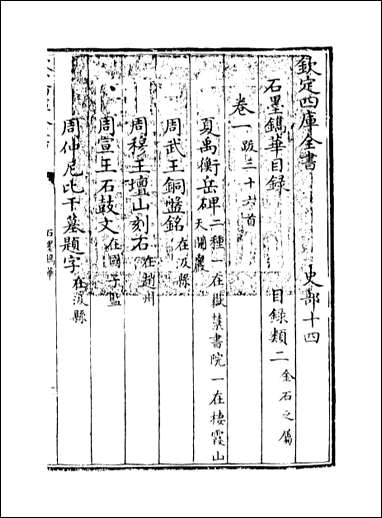 欽定四庫全書 史部十四
石墨鐫華目録 目録類二 金石之屬
卷一 跋三十六首
夏禹衡岳碑 二種一在嶽麓書院一在棲霞山天開巖
周武王銅盤銘 在汲縣
周穆王壇山刻石 在趙州
周宣王石鼓文 在國子監
周仲尼比干墓題字 在汲縣
石墨鐫華